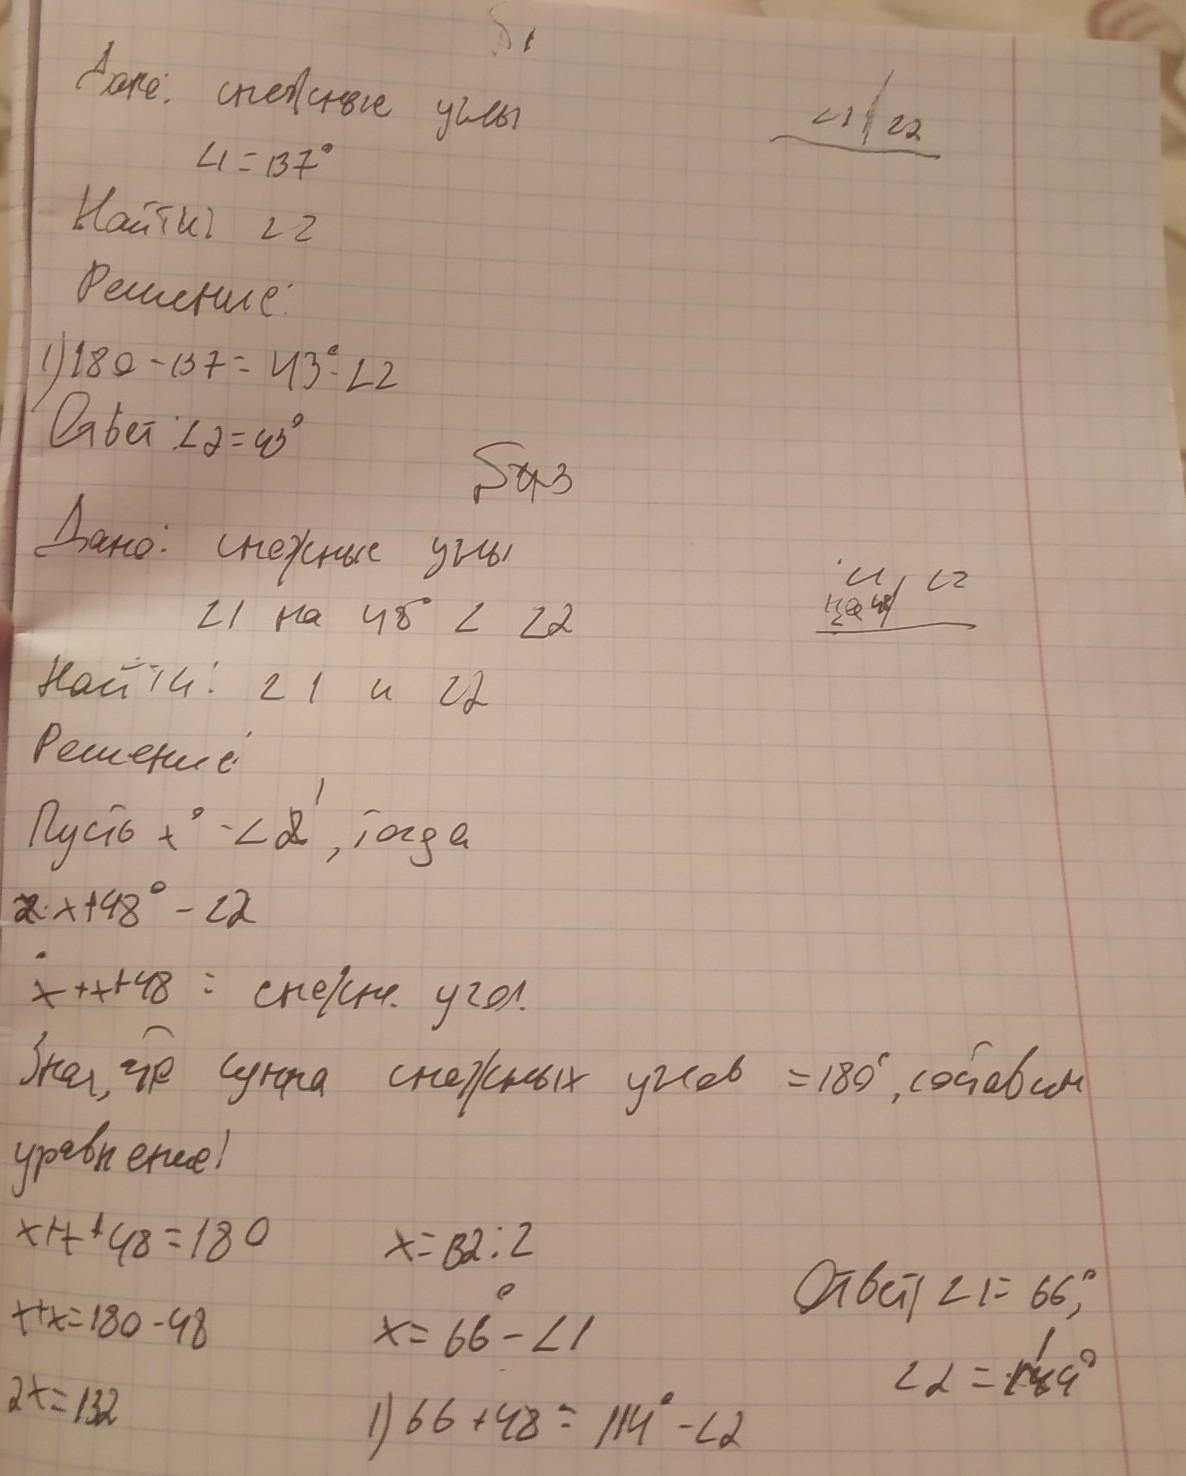 Дано: смежные углы
∠1 ∠2
∠1 = 137°
Найти: ∠2
Решение:
1) 180 - 137 = 43° - ∠2
Ответ: ∠2 = 43°
Дано: смежные углы
∠1 на 48° < ∠2
∠1 ∠2
на 48
Найти: ∠1 и ∠2
Решение:
Пусть x° - ∠1, тогда
x + 48° - ∠2
x + x + 48 = смежн. угол.
Зная, что сумма смежных углов = 180°, составим
уравнение:
x + x + 48 = 180
x + x = 180 - 48
2x = 132
x = 132 : 2
x = 66° - ∠1
1) 66 + 48 = 114° - ∠2
Ответ: ∠1 = 66°;
∠2 =